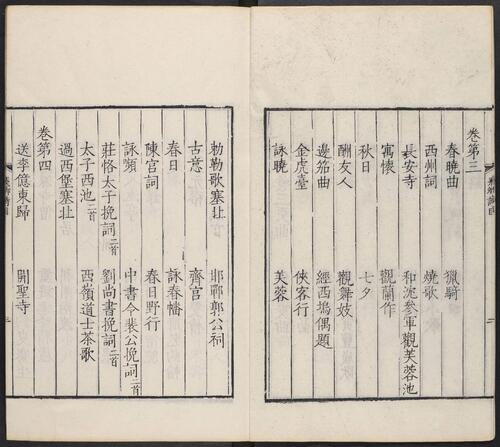 卷第三
春曉曲 獵騎
西州詞 燒歌
長安寺 和沈參軍觀芙蓉池
寓懷 觀蘭作
秋日 七夕
酬友人 觀舞妓
邊笳曲 經西塢偶題
金虎臺 俠客行
詠曉 芙蓉
勅勒歌塞北 邯鄲郭公祠
古意 齊宮
春日 詠春幡
陳宮詞 春日野行
詠嚬 中書令裴公挽詞二首
莊恪太子挽詞二首 劉尚書挽詞二首
太子西池二首 西嶺道士茶歌
過西堡塞北
卷第四
送李億東歸 開聖寺